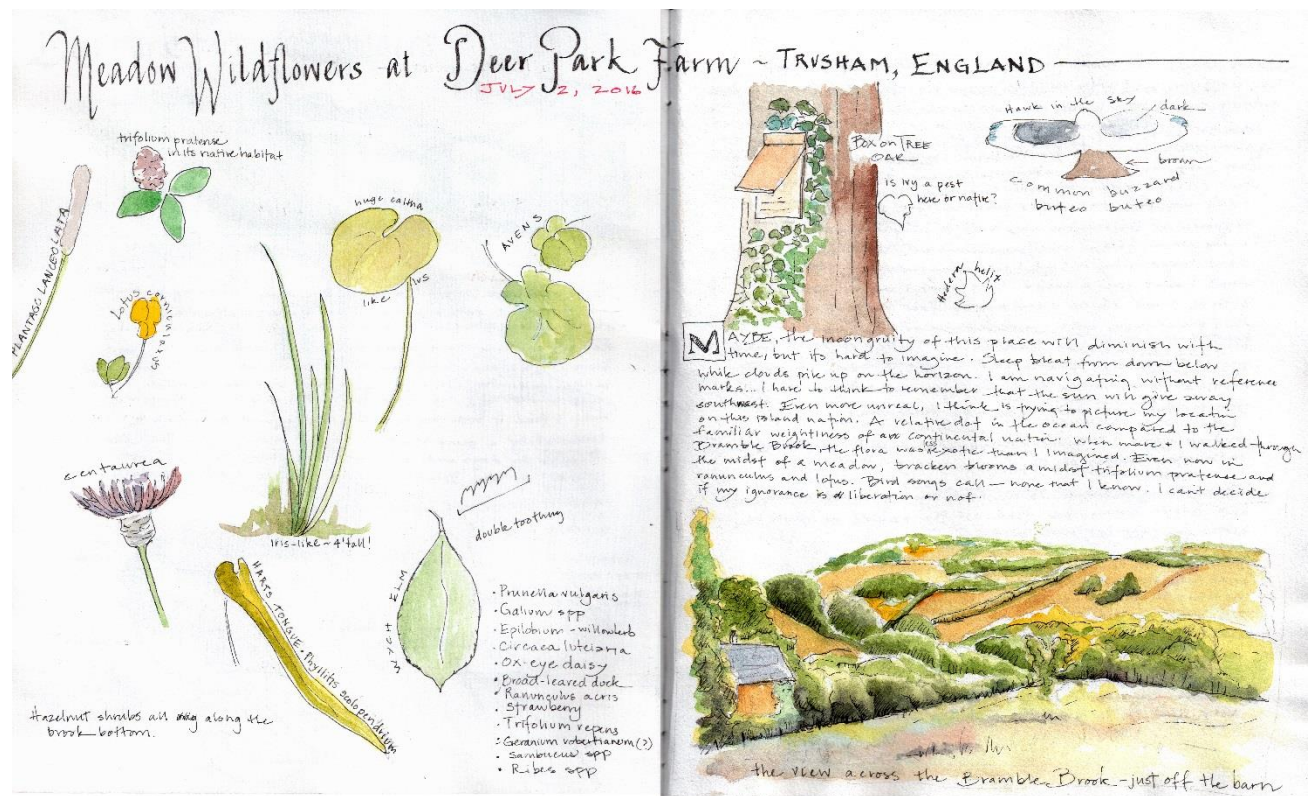 Meadow Wildflowers at Deer Park Farm ~ TRUSHAM, ENGLAND
JULY 2, 2016
trifolium pratense
in its native habitat
PLANTAGO LANCEOLATA
lotus corniculatus
huge caltha
like lvs
AVENS
centaurea
Iris-like ~ 4' tall!
double toothing
WYCH ELM
HARTS TONGUE · Phyllitis scolopendrium
Hazelnut shrubs all along the
brook bottom.
· Prunella vulgaris
· Galium spp
· Epilobium - willowherb
· Circaea luteiana
· Ox-eye daisy
· Broad-leaved dock
· Ranunculus acris
· Strawberry
· Trifolium repens
· Geranium robertianum (?)
· Sambucus spp
· Ribes spp
BOX on TREE
OAK
is ivy a pest
here or native?
Hawk in the sky
dark
brown
common buzzard
buteo buteo
Hedera helix
MAYBE, the incongruity of this place will diminish with
time, but its hard to imagine. Sheep bleat from down below
while clouds pile up on the horizon. I am navigating without reference
marks... I have to think to remember that the sun will give away
southwest. Even more unreal, I think is trying to picture my location
on this island nation. A relative dot in the ocean compared to the
familiar weightiness of a continental nation. When more + I walked through
Bramble Brook, the flora was less exotic than I imagined. Even now in
the midst of a meadow, bracken blooms amidst trifolium pratense and
ranunculus and lotus. Bird songs call — none that I know. I can't decide
if my ignorance is liberation or not.
the view across the Bramble Brook - just off the barn